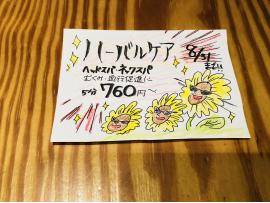 ハーバルケア
8/31まで!!
ヘッドスパ ネックスパ
むくみ・血行促進に
5分 760円〜